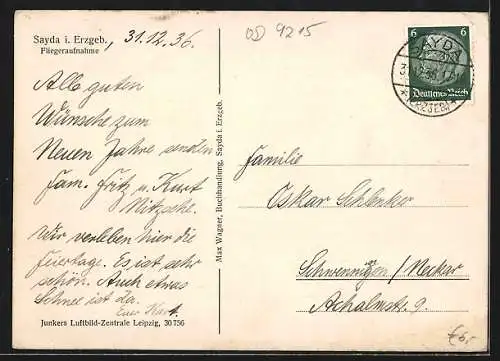 Sayda i. Erzgeb., 31.12.36.
Fliegeraufnahme
OD 9215
6 6
SAYDA
(ERZGEB)
Deutsches Reich
Alle guten
Wünsche zum
Neuen Jahre senden
Fam. Fritz u. Kurt
Nitzsche.
Wir verleben hier die
Feiertage. Es ist sehr
schön. Auch etwas
Schnee ist da.
Euer Kurt.
Junkers Luftbild-Zentrale Leipzig, 30756
Max Wagner, Buchhandlung, Sayda i. Erzgeb.
Familie
Oskar Schlenker
Schwenningen/Neckar
Achalmstr. 9.
€6,-